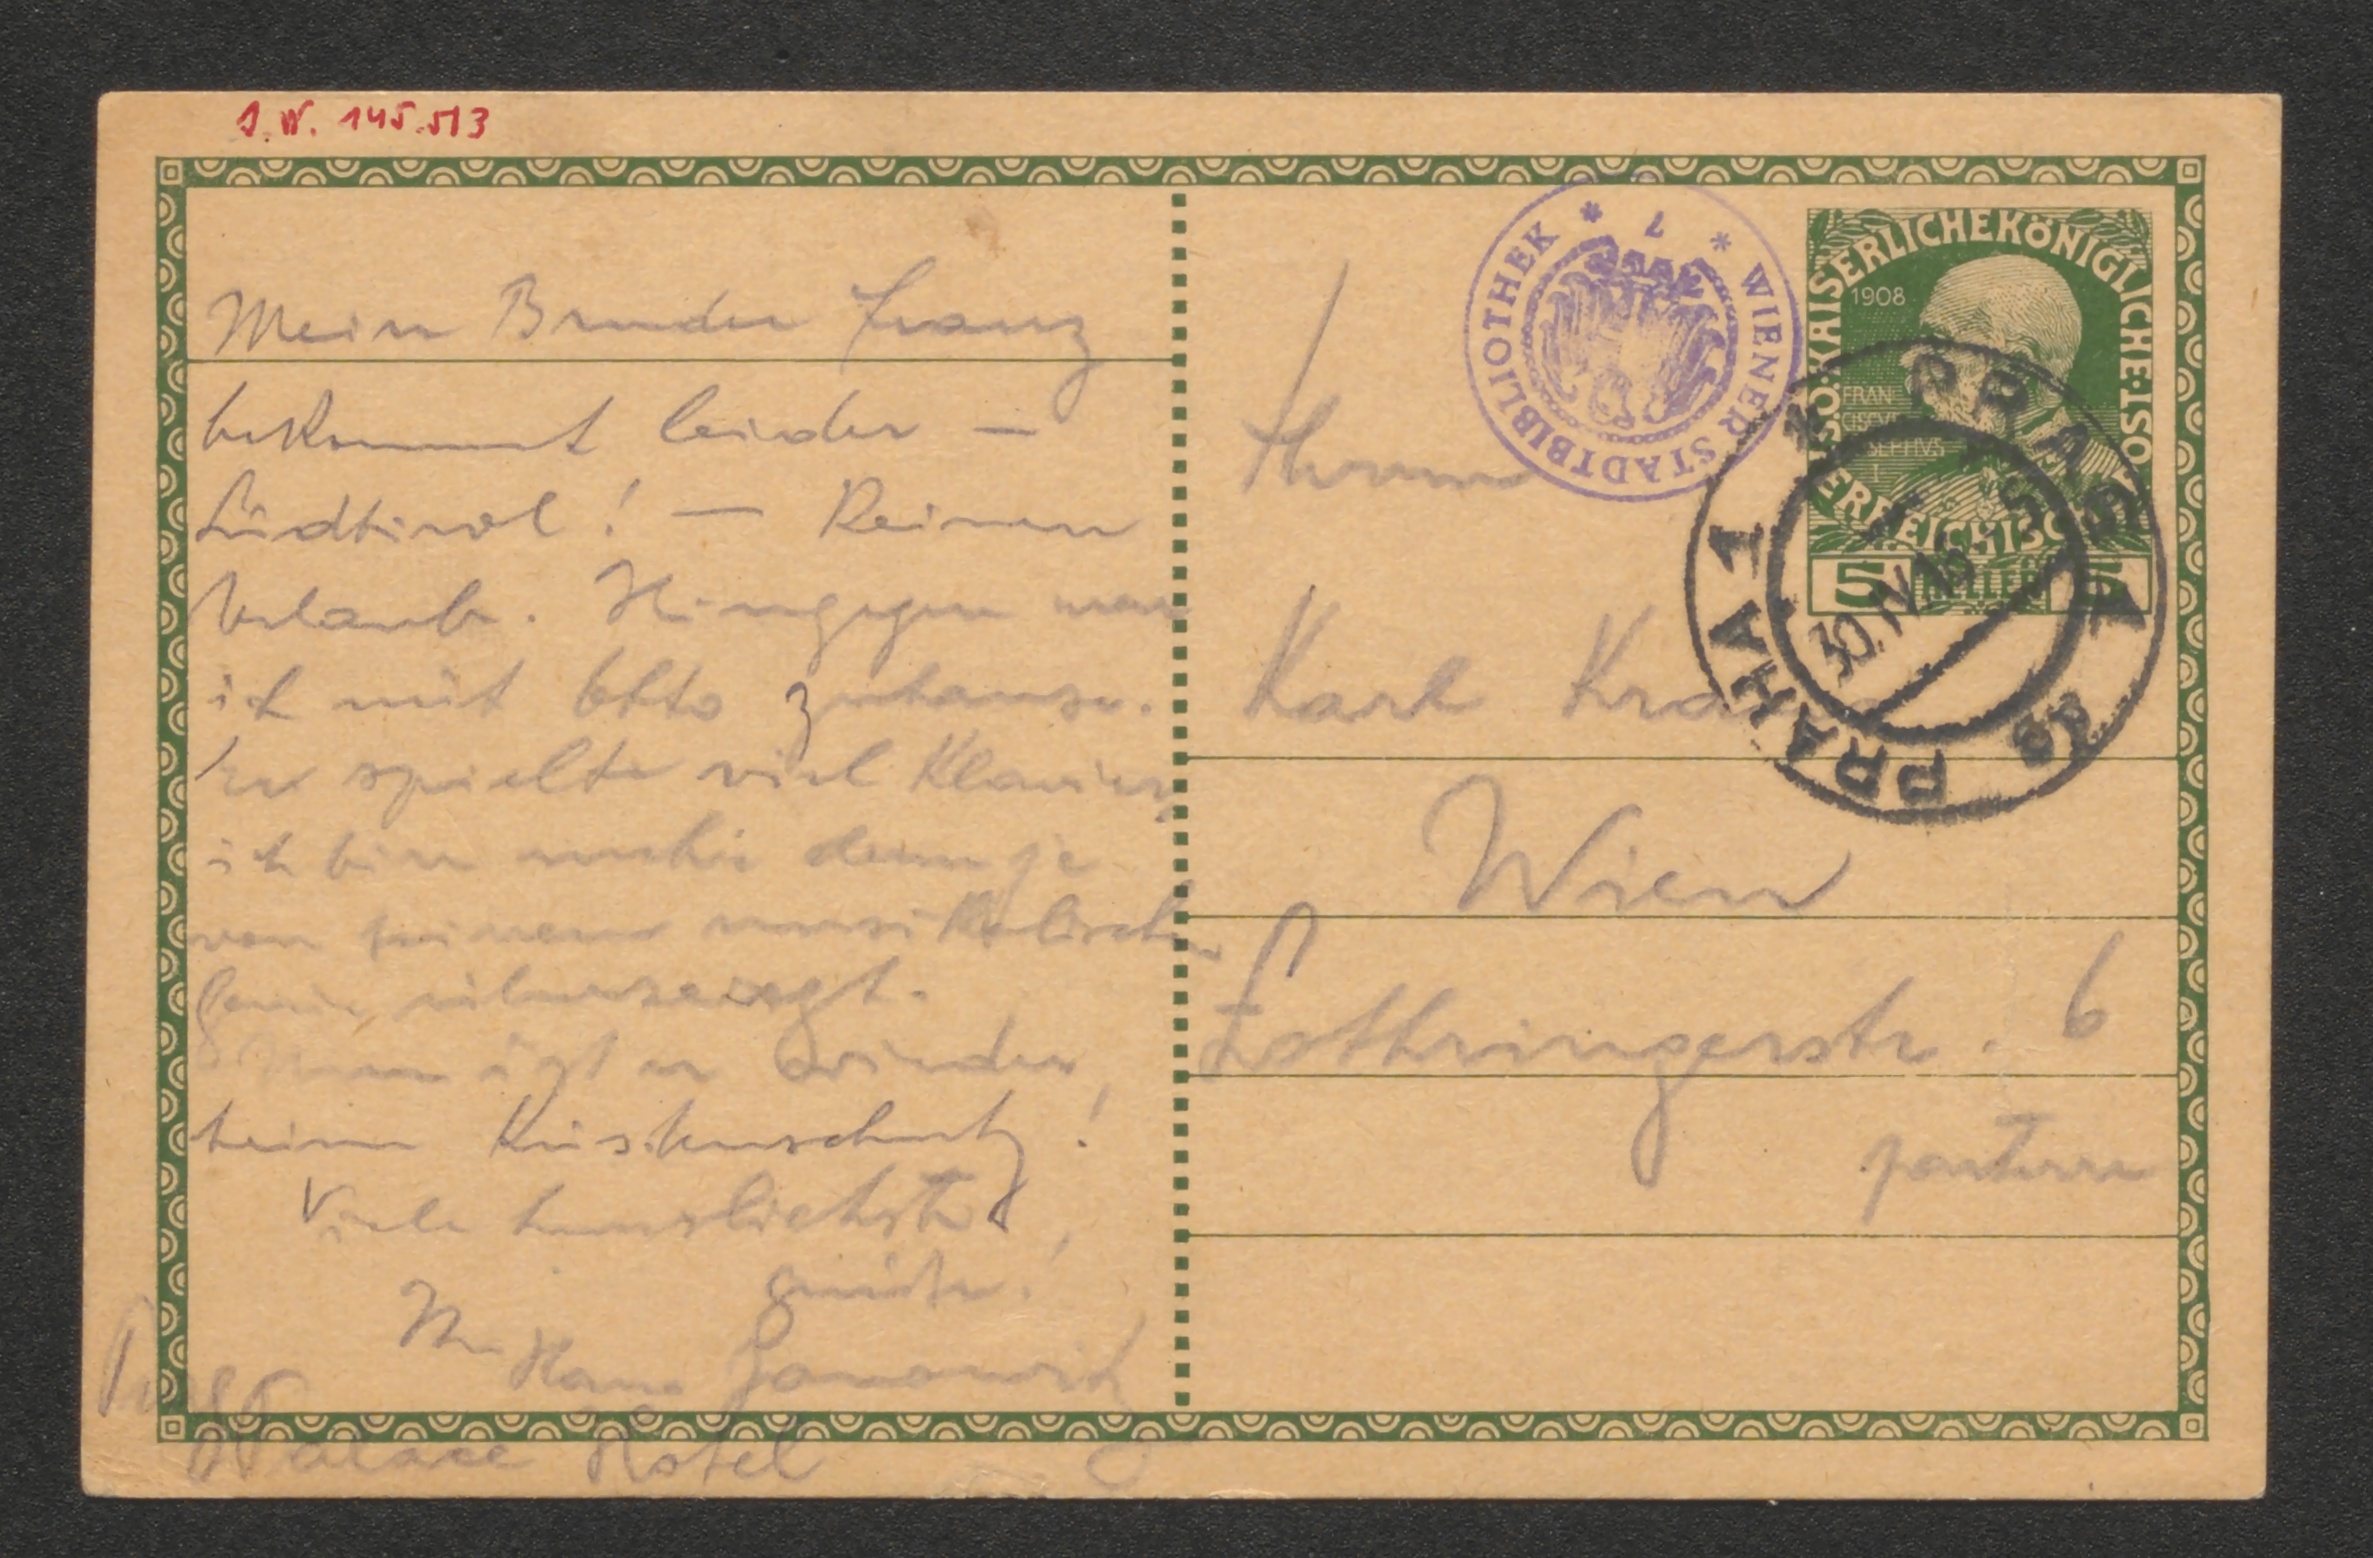 I.N. 145.513
Mein Bruder Franz
bekommt leider —
Südtirol! — Keinen
Urlaub. Hingegen war
ich mit Otto zuhause.
Er spielte viel Klavier,
ich bin mehr denn je
von seinem musikalischen
Genie überzeugt.
Nun ist er wieder
beim Küstenschutz!
Viele herzlichste
Grüße!
Ihr Hans Janowitz
Prag
Palace Hotel
WIENER STADTBIBLIOTHEK
KAISERLICHE KÖNIGLICHE
ÖSTERREICHISCHE
1908
FRAN
CISCVS
IOSEPHVS
I
5 HELLER 5
PRAG 1
30.IV.15
PRAHA 1
Herrn
Karl Kraus
Wien
Lothringerstr. 6
parterre